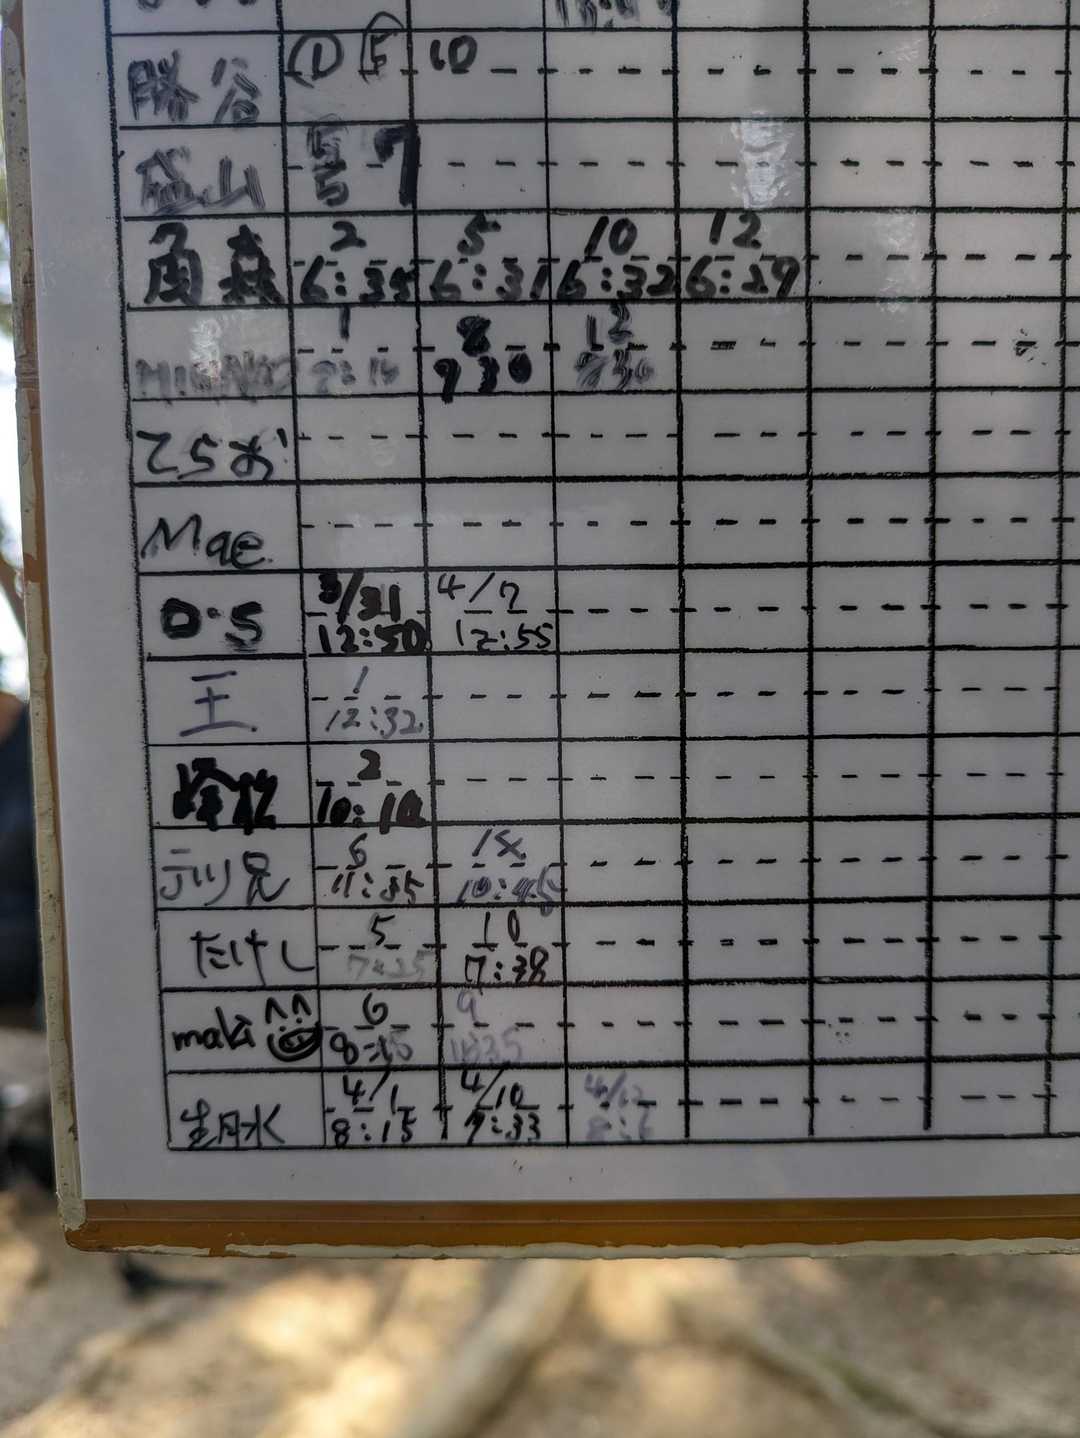 勝谷 ① 5 10
盛山 5 7
5
角森 2 5 10 12
6:35 6:31 6:32 6:29
1 8 12
930
てらお
Mae
O・S 3/31 4/7
12:50 12:55
王 1
12:32
峰松 2
10:10
兄 6
11:35 10:45
たけし 5 10
7:25 7:38
maki 6 9
8:15 11:35
生月水 4/1 4/10 4/12
8:15 7:33